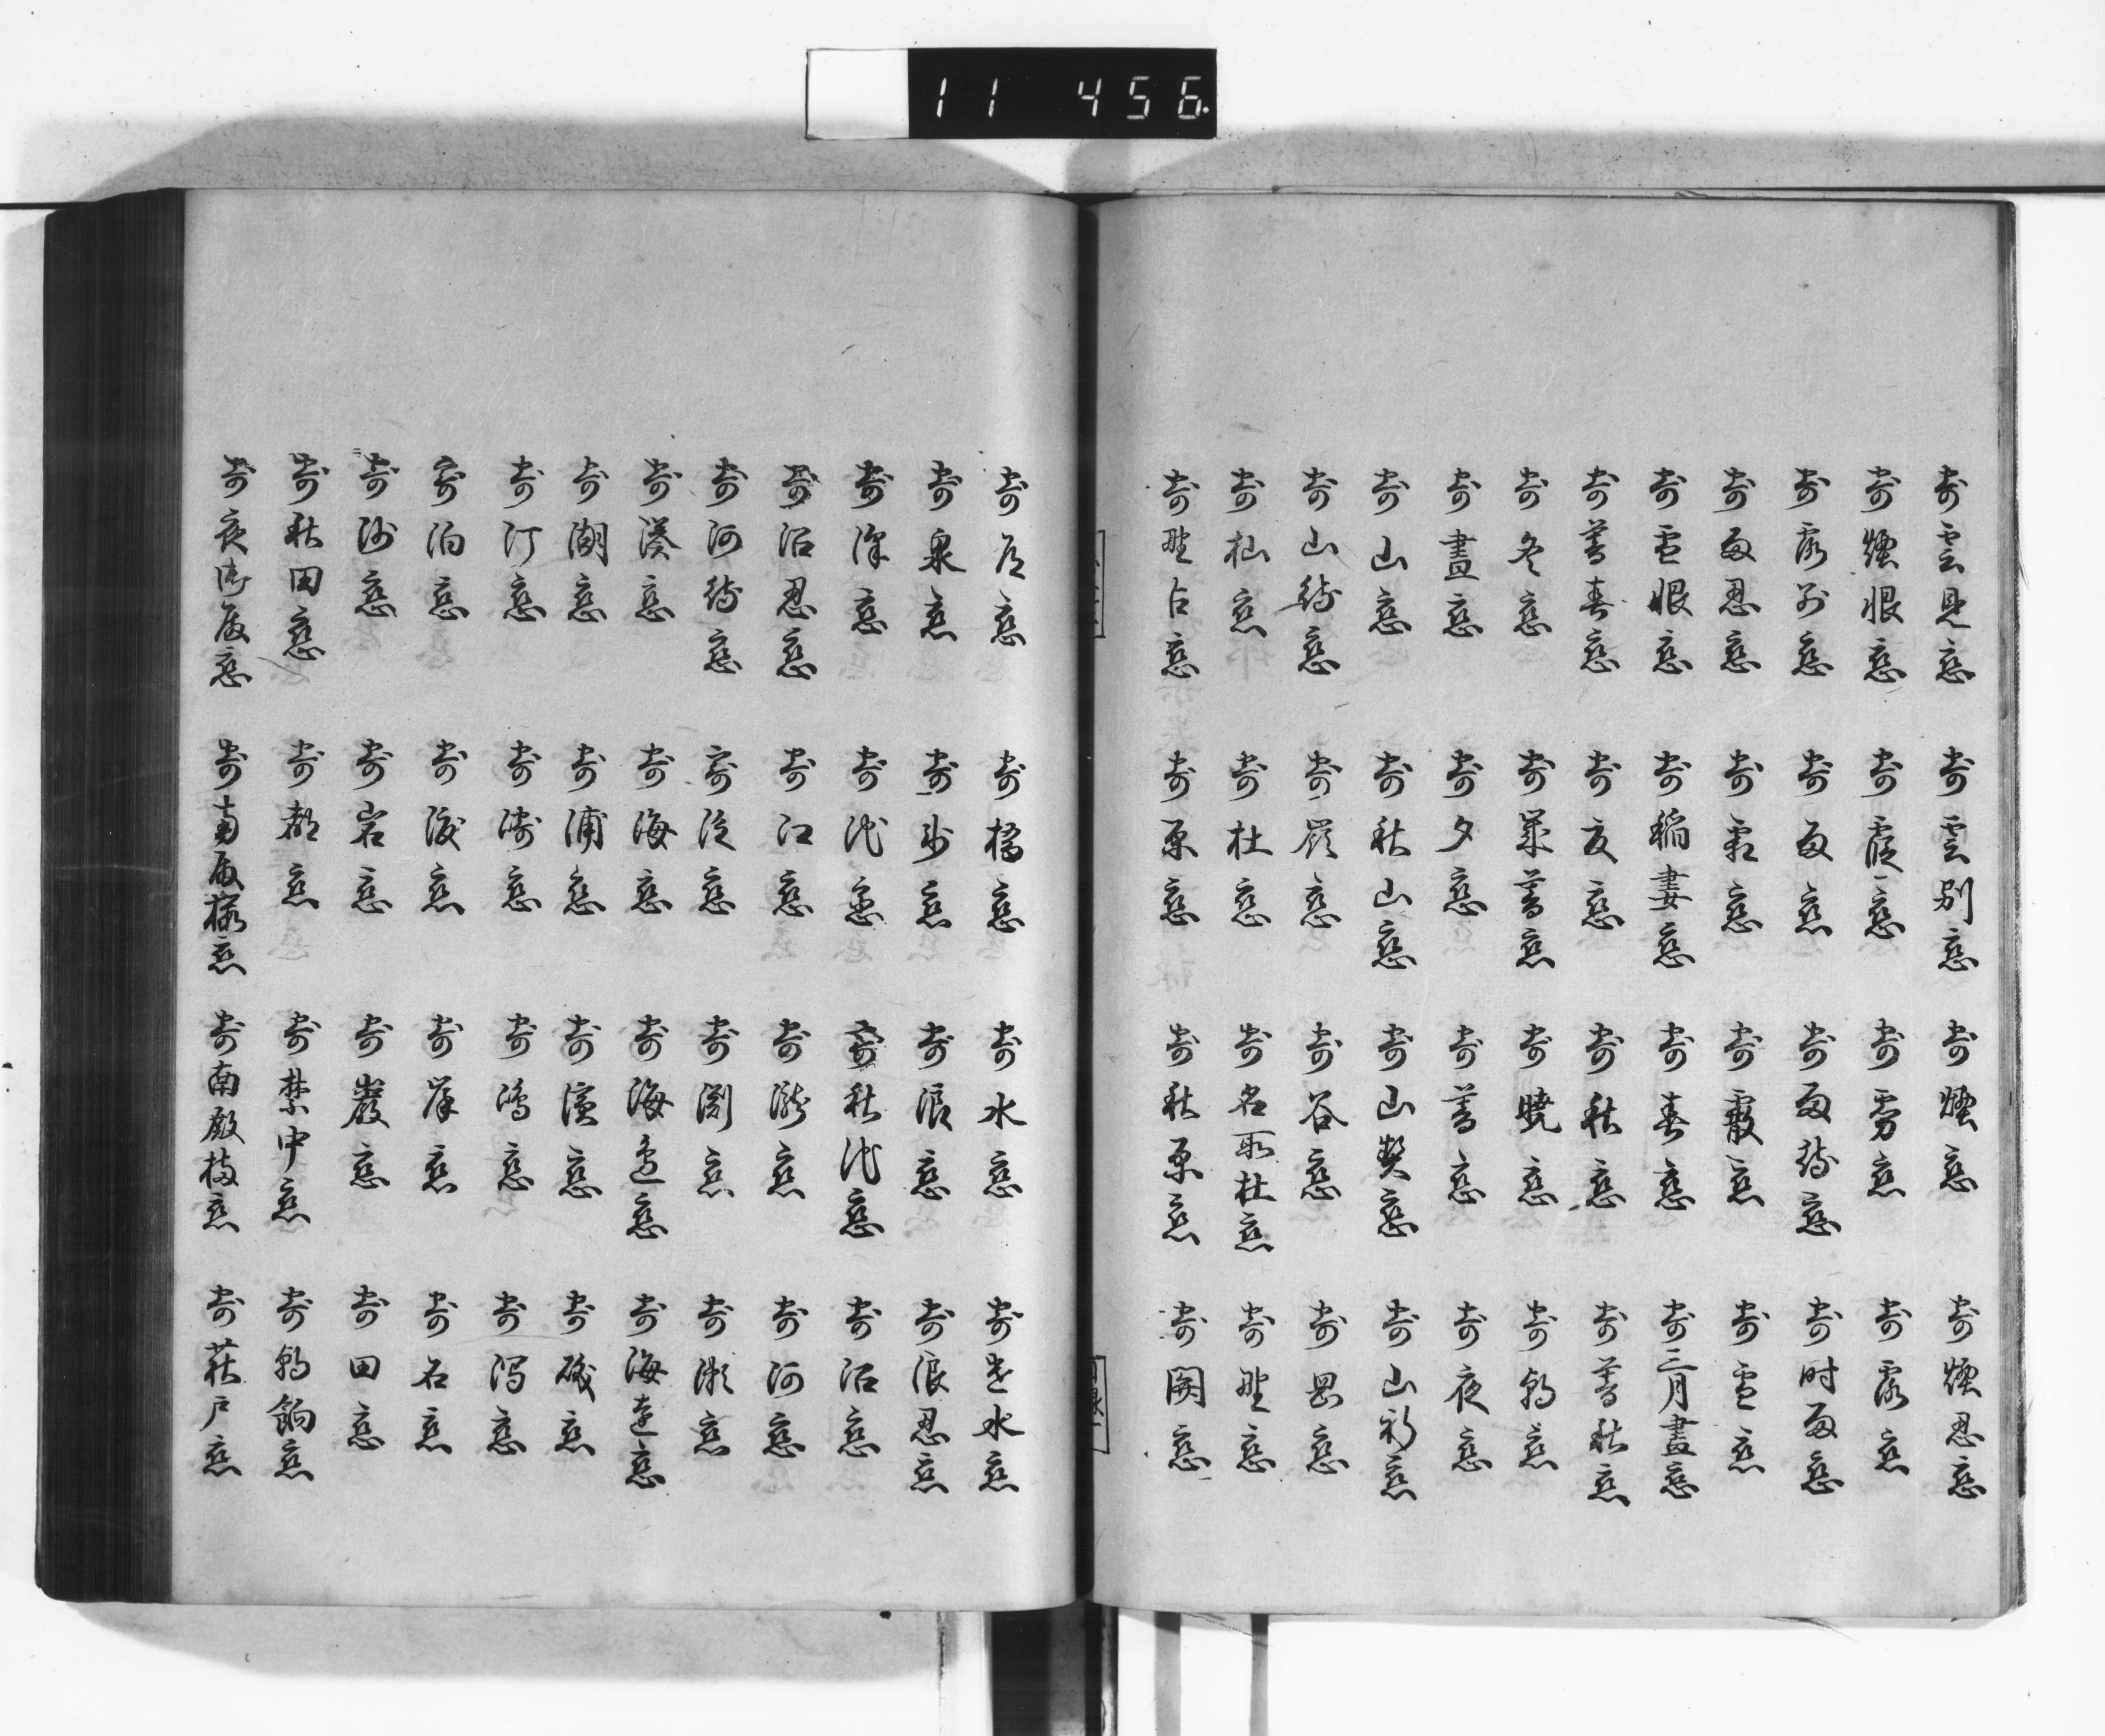 11 456.
寄雲見恋 寄雲別恋 寄煙恋 寄煙忍恋
寄煙恨恋 寄霞恋 寄雾恋 寄露恋
寄露別恋 寄雨恋 寄雨待恋 寄時雨恋
寄雨忍恋 寄霜恋 寄霰恋 寄雪恋
寄雪恨恋 寄稲妻恋 寄春恋 寄三月尽恋
寄暮春恋 寄夏恋 寄秋恋 寄暮秋恋
寄冬恋 寄歳暮恋 寄暁恋 寄朝恋
寄昼恋 寄夕恋 寄暮恋 寄夜恋
寄山恋 寄秋山恋 寄山契恋 寄山祈恋
寄山待恋 寄嶺恋 寄谷恋 寄岡恋
寄杣恋 寄杜恋 寄名所杜恋 寄野恋
寄野占恋 寄原恋 寄秋原恋 寄関恋
寄道恋 寄橋恋 寄水恋 寄遣水恋
寄泉恋 寄氷恋 寄浪恋 寄浪忍恋
寄 恋 寄池恋 寄秋池恋 寄沼恋
寄沼忍恋 寄江恋 寄滝恋 寄河恋
寄河待恋 寄淀恋 寄淵恋 寄瀬恋
寄湊恋 寄海恋 寄海辺恋 寄海遠恋
寄湖恋 寄浦恋 寄浜恋 寄磯恋
寄汀恋 寄 恋 寄 恋 寄潟恋
寄泊恋 寄 恋 寄岸恋 寄石恋
寄沙恋 寄岩恋 寄巌恋 寄田恋
寄秋田恋 寄都恋 寄禁中恋 寄朝餉恋
寄夜御殿恋 寄南殿桜恋 寄南殿 恋 寄萩戸恋